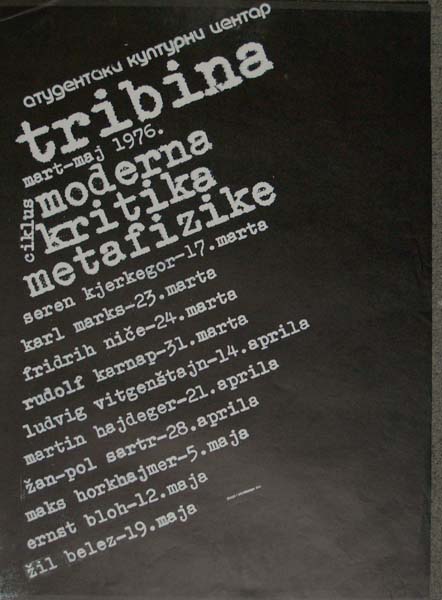 студентски културни центар
tribina
mart-maj 1976.
ciklus
moderna
kritika
metafizike
seren kjerkegor-17.marta
karl marks-23.marta
fridrih niče-24.marta
rudolf karnap-31.marta
ludvig vitgenštajn-14.aprila
martin hajdeger-21.aprila
žan-pol sartr-28.aprila
maks horkhajmer-5.maja
ernst bloh-12.maja
žil belez-19.maja